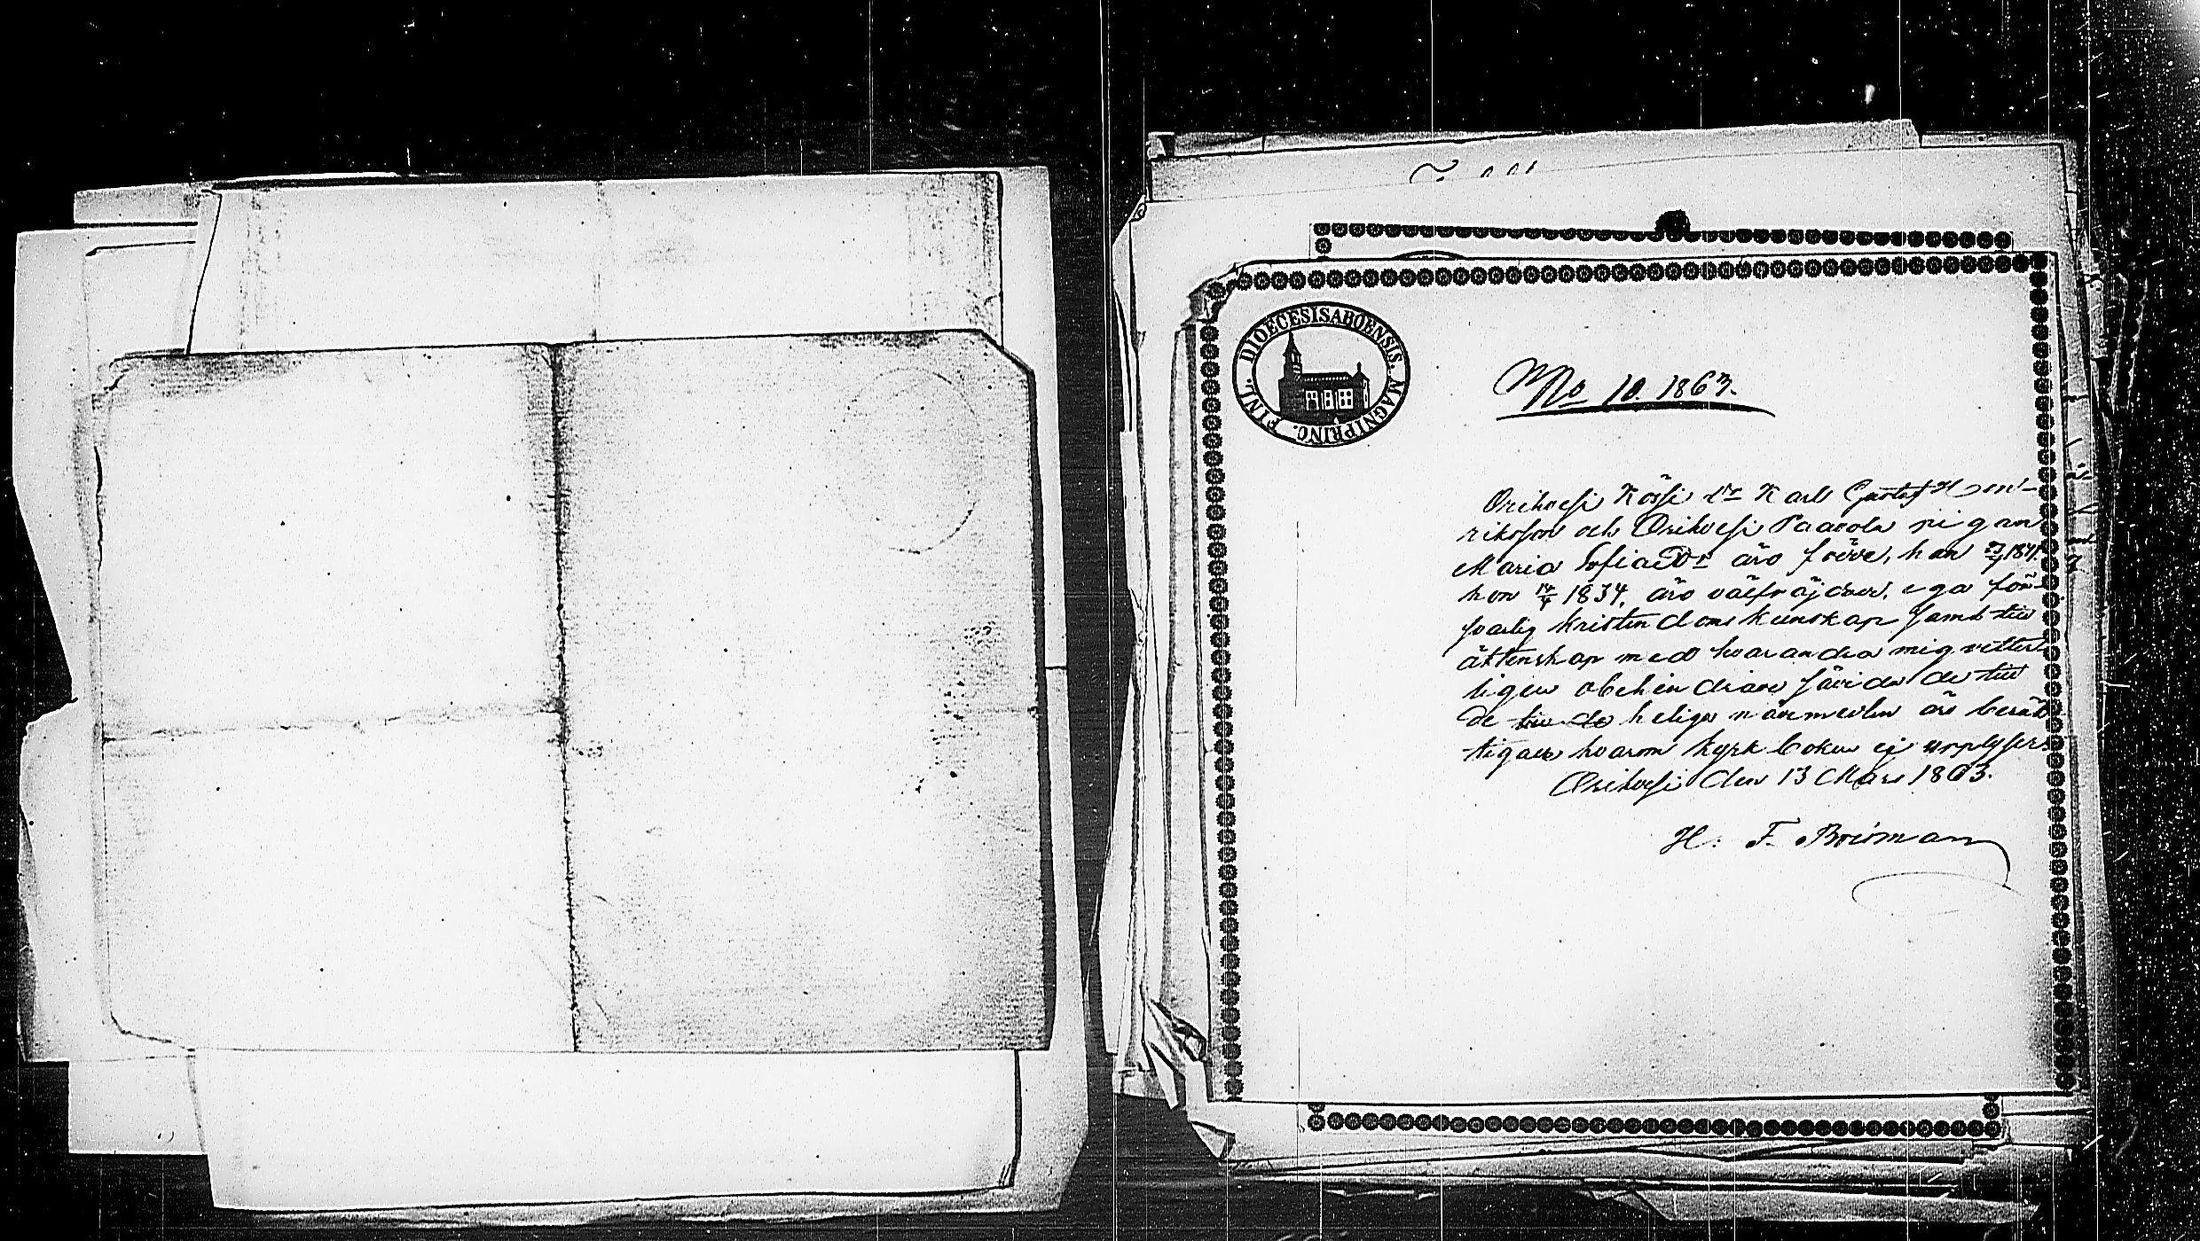 DIOECESIS ABOENSIS. MAGNI PRINC. FINL.
No 10. 1863.
Orihvesi Karl Gustaf Hen-
rikson och Orihvesi Paavola pigan
Maria Sofia äro födde, han 1841.
hon 1834, äro välfräjdade, ega för-
svarlig kristendoms kunskap samt till
äktenskap med hvarandra mig vetter-
ligen obehindrade såvida de till
de till de heliga nådmedlen äro berät-
tigade hvarom kyrkboken ej upplyser.
Orihvesi den 13 Mars 1863.
H. F.